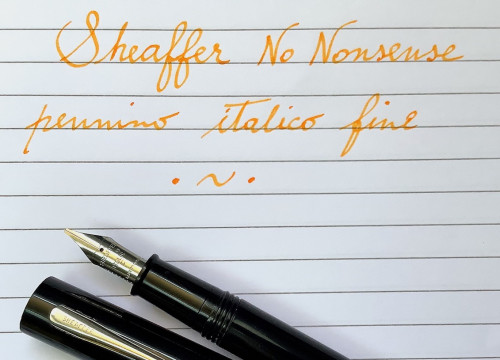 Sheaffer No Nonsense
pennino italico fine
. ~ .